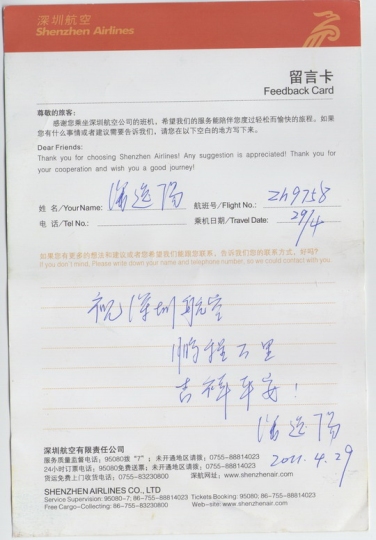 深圳航空
Shenzhen Airlines
留言卡
Feedback Card
尊敬的旅客：
感谢您乘坐深圳航空公司的班机，希望我们的服务能陪伴您度过轻松而愉快的旅程。如果
您有什么事情或者建议需要告诉我们，请您在以下空白的地方写下来。
Dear Friends:
Thank you for choosing Shenzhen Airlines! Any suggestion is appreciated! Thank you for
your cooperation and wish you a good journey!
姓 名/Your Name: 航班号/Flight No.: Zh9758
电 话/Tel No.: 乘机日期/Travel Date: 29/4
如果您有更多的想法和建议或者您希望我们能跟您联系，告诉我们您的联系方式，好吗？
If you don't mind, Please write down your name and telephone number, so we could contact with you.
祝深圳航空
鹏程万里
吉祥平安！
2011.4.29
深圳航空有限责任公司
服务质量监督电话：95080拨“7”；未开通地区请拨：0755-88814023
24小时订票电话：95080免费送票；未开通地区请拨：0755-88814023
货运免费上门收货电话：0755-83230800 深航网址：www.shenzhenair.com
SHENZHEN AIRLINES CO., LTD
Service Supervision: 95080; 86-755-88814023 Tickets Booking: 95080; 86-755-88814023
Free Cargo-Collecting: 86-755-83230800 Web-site: www.shenzhenair.com